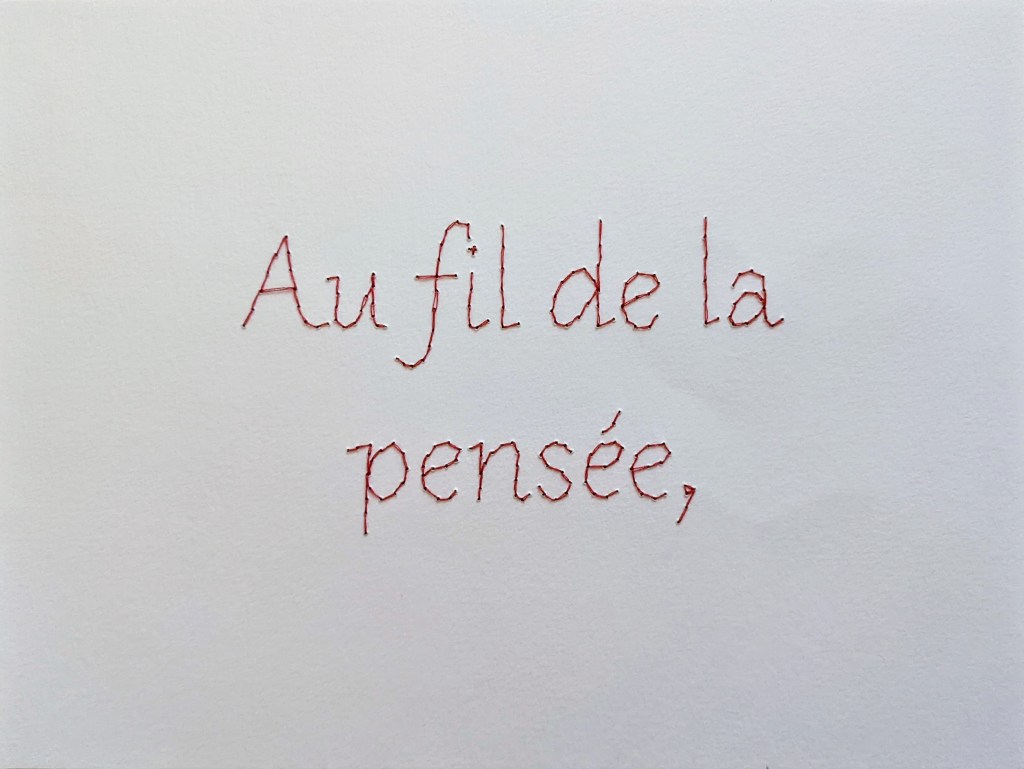 Au fil de la
pensée,